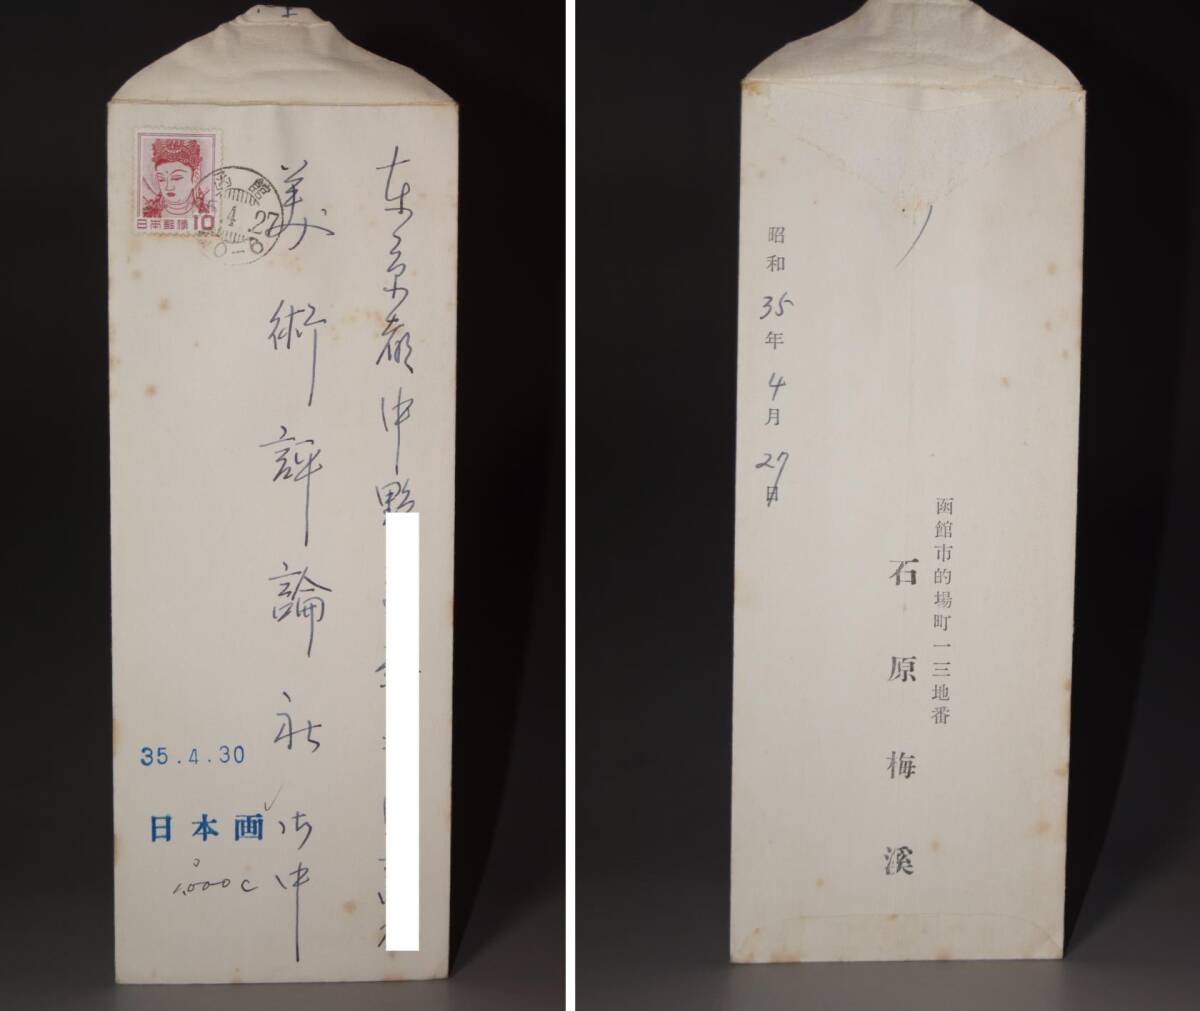 東京都中野
美術評論社御中
日本郵便 10
函館
4.27
35.4.30
日本画
1,000
函館市的場町一三地番
石原梅溪
昭和35年4月27日